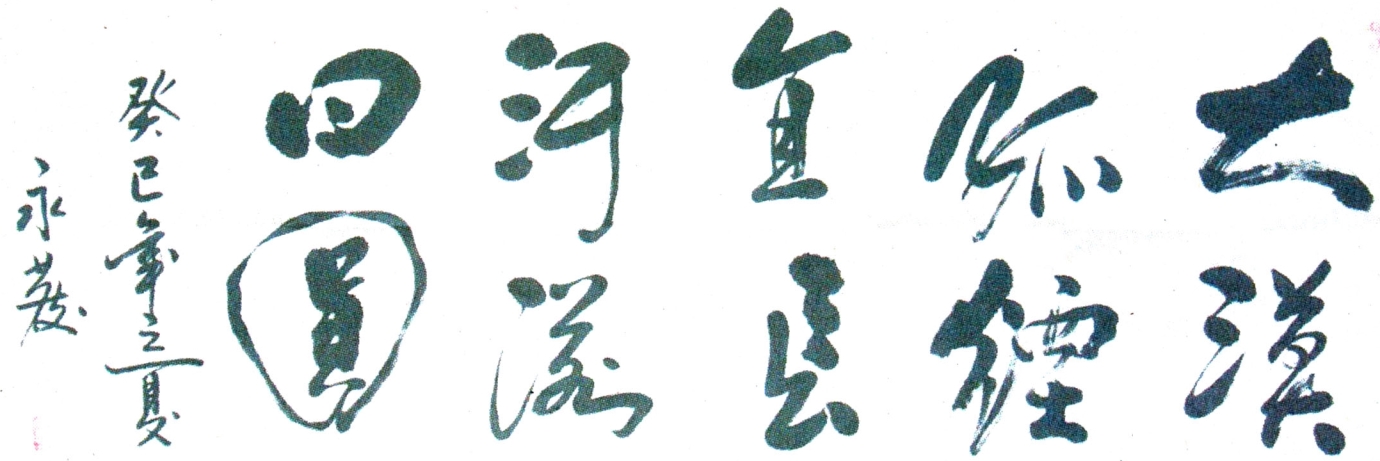 大漠
孤煙
直長
河落
日圓
癸巳年立夏
永發